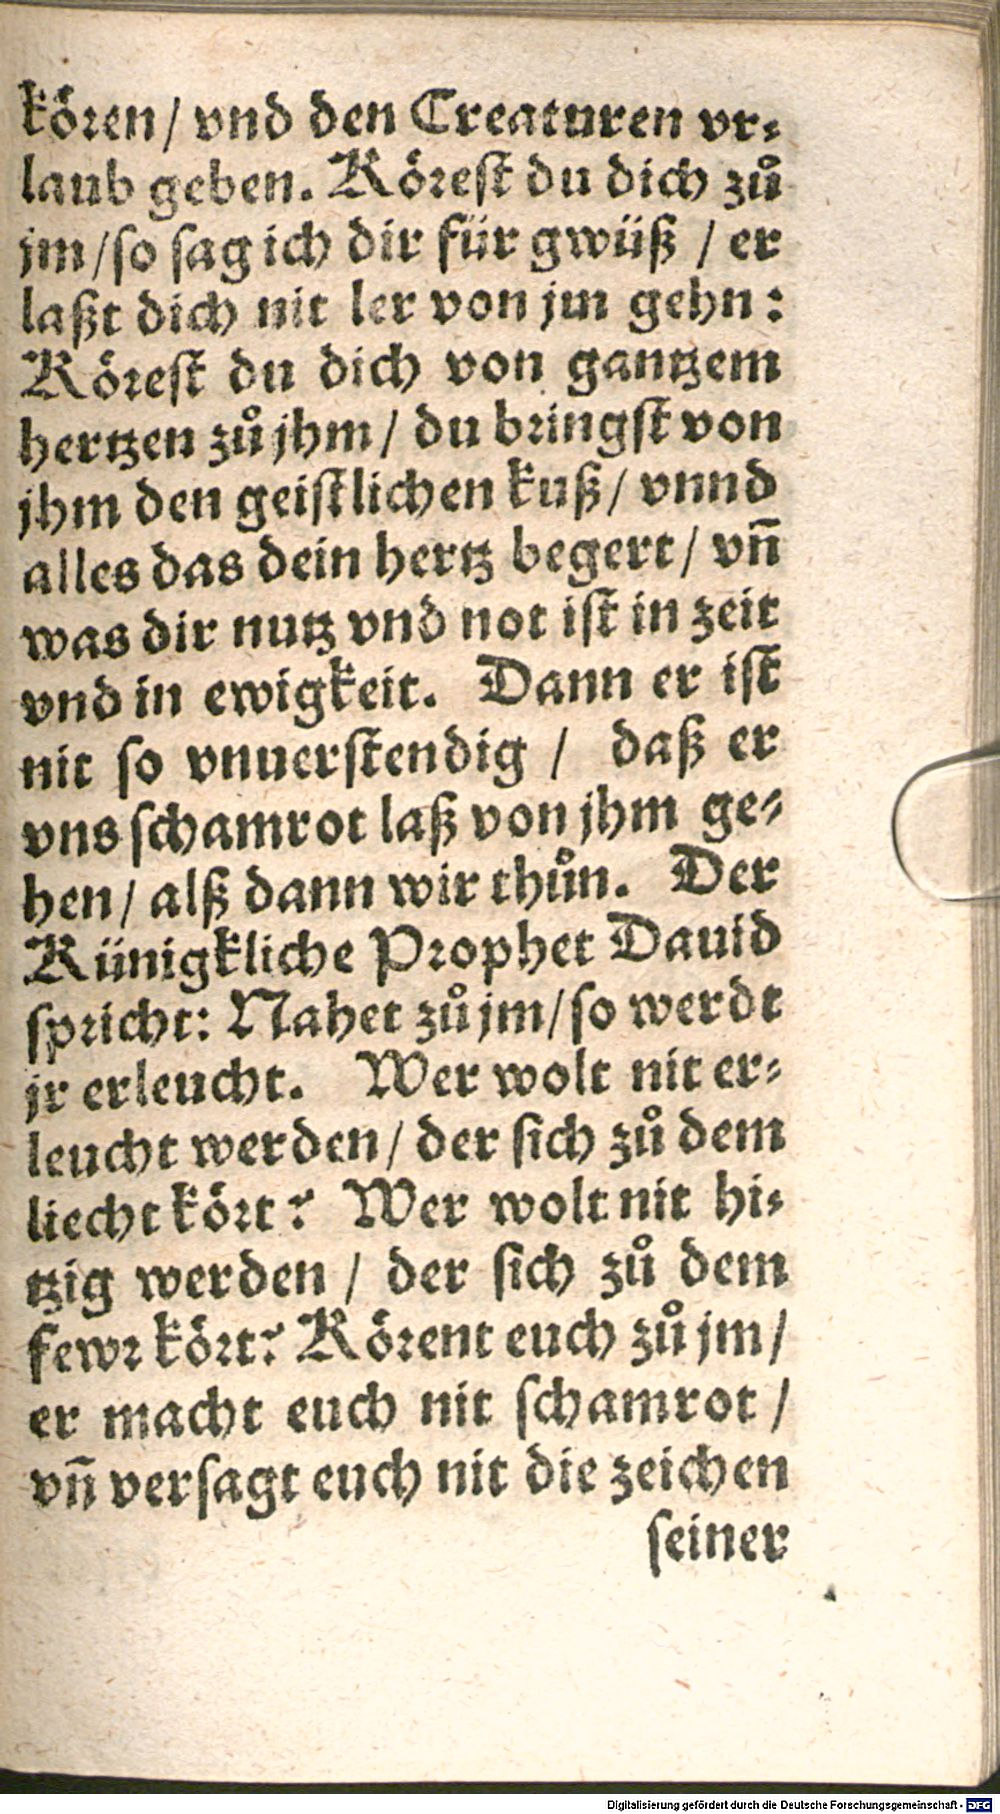 kören / vnd den Creaturen vr⸗
laub geben. Körest du dich zů
jm / so sag ich dir für gwüß / er
laßt dich nit ler von jm gehn:
Körest du dich von gantzem
hertzen zů jhm / du bringst von
jhm den geistlichen kuß / vnnd
alles das dein hertz begert / vñ
was dir nutz vnd not ist in zeit
vnd in ewigkeit. Dann er ist
nit so vnuerstendig / daß er
vns schamrot laß von jhm ge⸗
hen / alß dann wir thůn. Der
Künigkliche Prophet Dauid
spricht: Nahet zů jm / so werdt
jr erleucht. Wer wolt nit er⸗
leucht werden / der sich zů dem
liecht kört? Wer wolt nit hi⸗
tzig werden / der sich zů dem
fewr kört? Körent euch zů jm /
er macht euch nit schamrot /
vñ versagt euch nit die zeichen
seiner
Digitalisierung gefördert durch die Deutsche Forschungsgemeinschaft - DFG